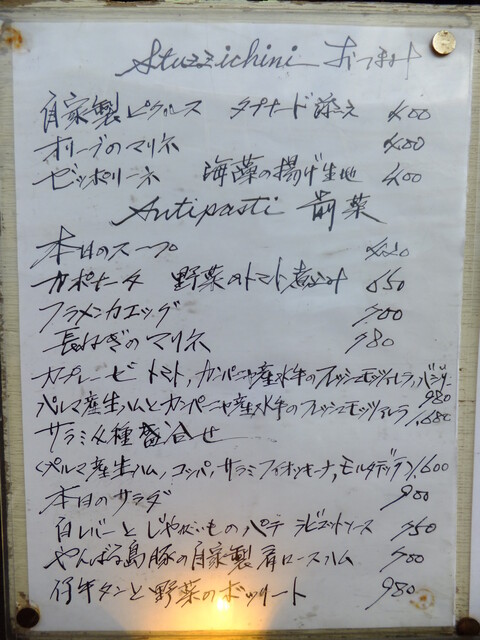 Stuzzichini おつまみ
自家製ピクルス タプナード添え 400
オリーブのマリネ 400
ゼッポリーネ 海藻の揚げ生地 400
Antipasti 前菜
本日のスープ
カポナータ 野菜のトマト煮込み 650
フラメンカエッグ 700
長ねぎのマリネ 780
カプレーゼ トマト,カンパーニャ産水牛のフレッシュモッツァレラ,バジリコ 980
パルマ産生ハムとカンパーニャ産水牛のフレッシュモッツァレラ 1,680
サラミ4種盛合せ
<パルマ産生ハム,コッパ,サラミフィオッキーナ,モルタデッラ> 1,600
本日のサラダ 900
白レバーとじゃがいものパテ ジビエットソース 750
やんばる島豚の自家製肩ロースハム 700
仔牛タンと野菜のボッリート 980